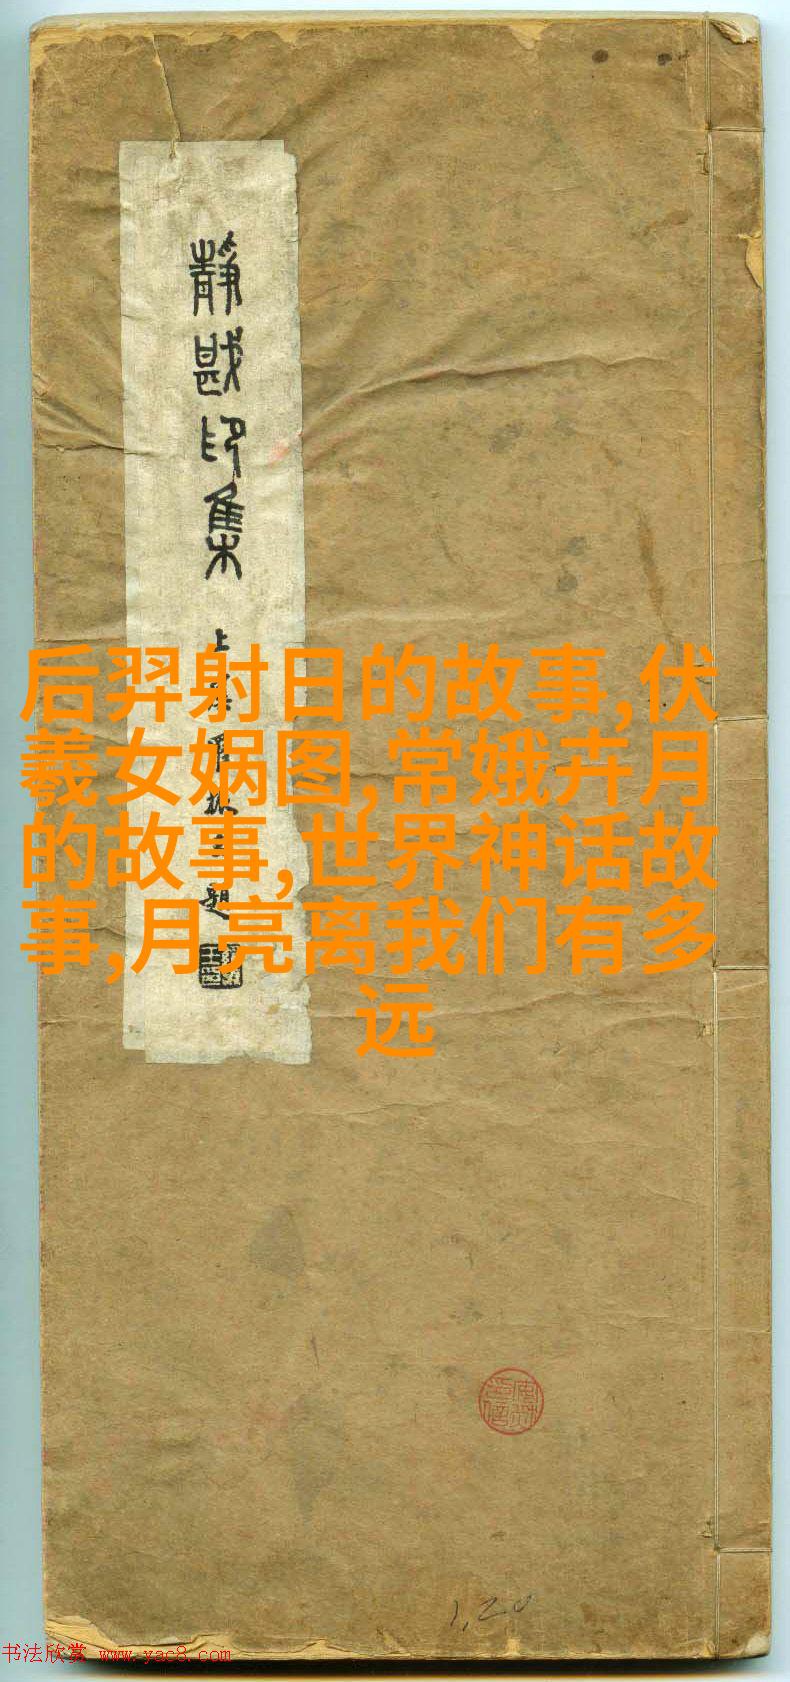 靜戡印集
上虞羅振玉題
后羿射日的故事,伏
羲女娲图,常娥卉月
的故事,世界神话故
事,月亮离我们有多
远
1,20
书法欣赏 www.yac8.com